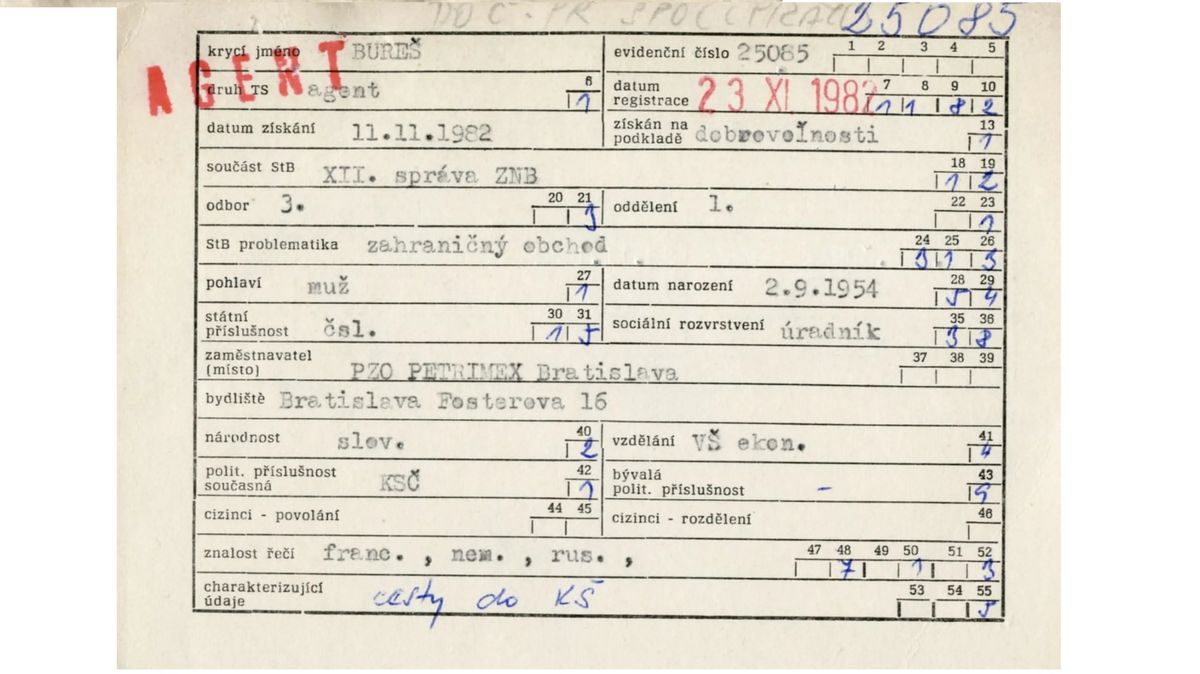 DOČ. PR SPOLUPRAC
25085
AGENT
krycí jméno BUREŠ evidenční číslo 25085 1 2 3 4 5
druh TS agent 6 1 datum registrace 23 XI. 1982 7 8 9 10 1 1 8 2
datum získání 11.11.1982 získán na podkladě dobrovoľnosti 13 1
součást StB XII. správa ZNB 18 19 1 2
odbor 3. 20 21 3 oddělení 1. 22 23 1
StB problematika zahraničný obchod 24 25 26 3 1 3
pohlaví muž 27 1 datum narození 2.9.1954 28 29 5 4
státní příslušnost čsl. 30 31 1 5 sociální rozvrstvení úradník 35 36 3 8
zaměstnavatel (místo) PZO PETRIMEX Bratislava 37 38 39
bydliště Bratislava Fosterova 16
národnost slov. 40 2 vzdělání VŠ ekon. 41 4
polit. příslušnost současná KSČ 42 1 bývalá polit. příslušnost - 43 9
cizinci - povolání 44 45 cizinci - rozdělení 46
znalost řečí franc. , nem. , rus. , 47 48 49 50 51 52 7 1 3
charakterizující údaje cesty do KŠ 53 54 55 5